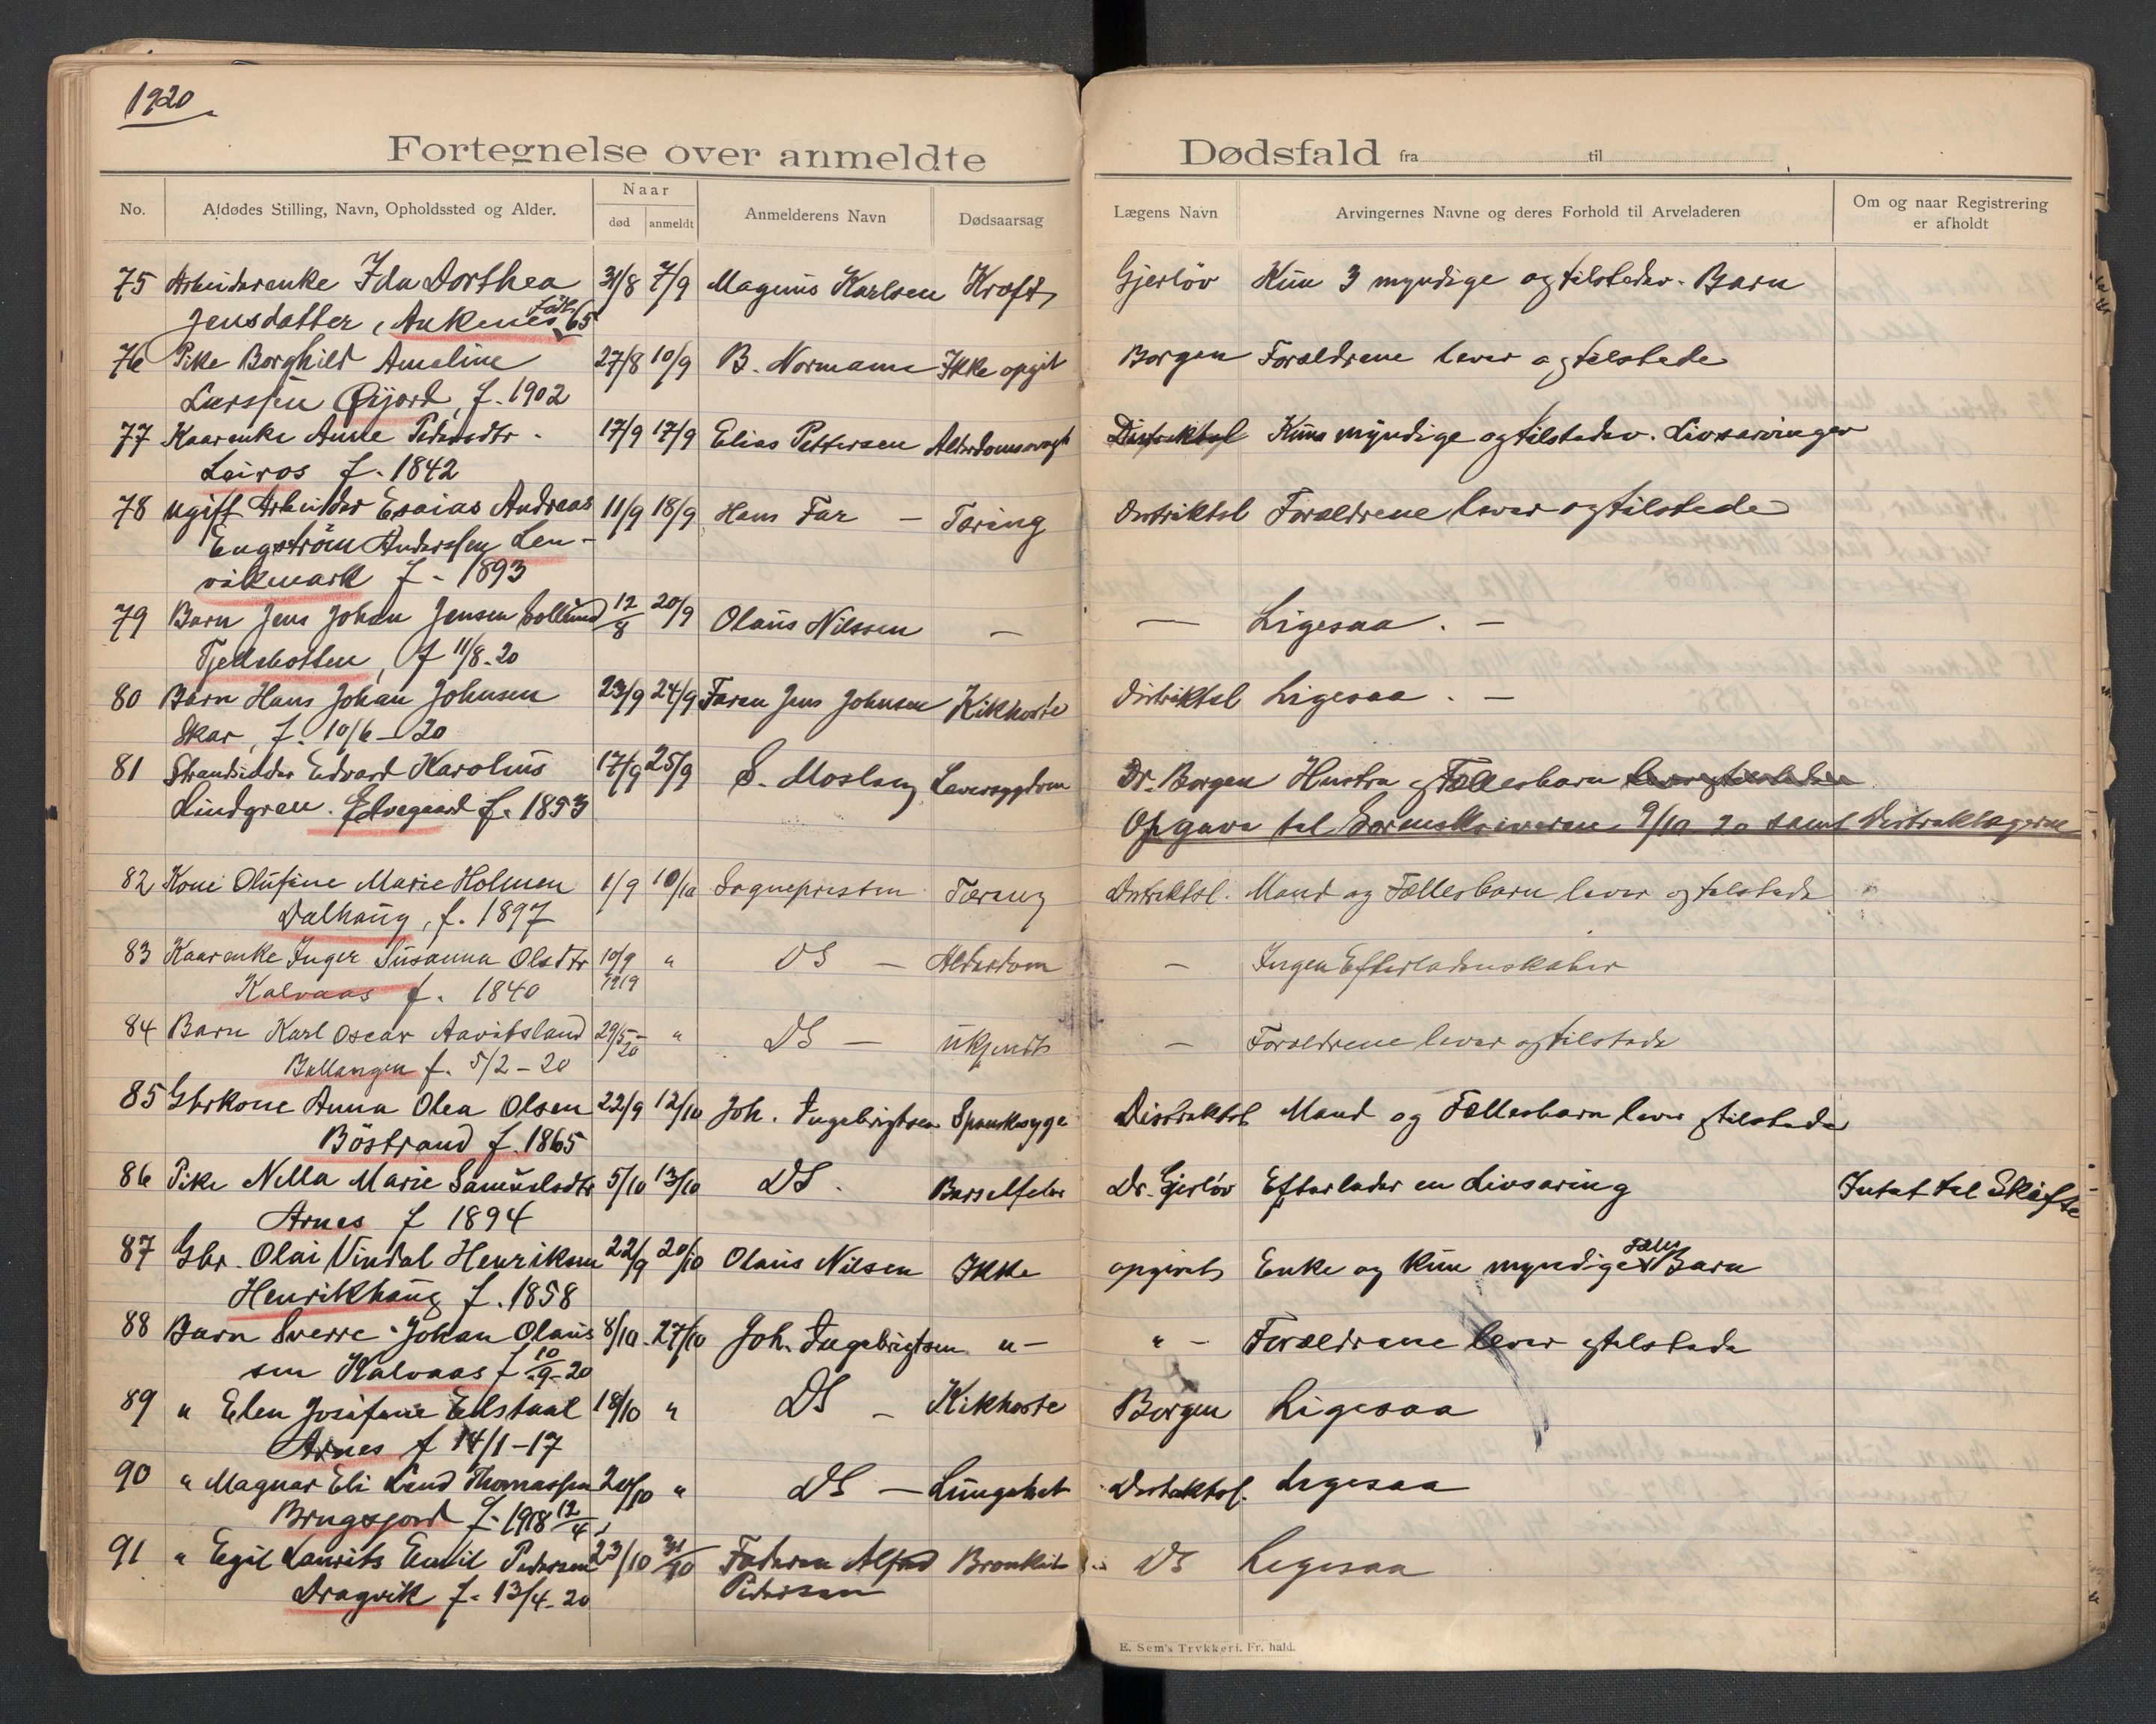 1920
Fortegnelse over anmeldte Dødsfald fra til
No. Afdødes Stilling, Navn, Opholdssted og Alder. Naar død anmeldt Anmelderens Navn Dødsaarsag Lægens Navn Arvingernes Navne og deres Forhold til Arveladeren Om og naar Registrering er afholdt
75 Arbeiderenke Ida Dorthea 31/8 7/9 Magnus Karlsen Kræft Gjerløv Kun 3 myndige og tilstedev. Barn
Jensdatter, Ankenes, 65
76 Pike Borghild Ameline 27/8 10/9 B. Normann Ikke opgit Borgen Forældrene lever og tilstede
Larssen Øijord, f. 1902
77 Kaarenke Anne Pedersdtr. 17/9 17/9 Elias Pettersen Distriktsl Kun myndige og tilstedev. Livsarvinger
Leiros f. 1842
78 ugift Arbeider Esaias Andreas 11/9 18/9 Hans Far – Tæring Distriktsl Forældrene lever og tilstede
Engström Anderssen Len-
vikmark f. 1893
79 Barn Jens Johan Jensen Sollund 12/8 20/9 Olaus Nilssen – – Ligesaa . –
Tjeldbotten, f 11/8-20
80 Barn Hans Johan Johnsen 23/9 24/9 Faren Jens Johnsen Kikhoste Distriktsl Ligesaa . –
Skar, f. 10/6-20
81 Strandsidder Edvard Karolius 17/9 25/9 S. Moslang Leversygdom Dr. Borgen Hustru og Fællesbarn
Lindgren. Elvegaard f. 1853 Opgave til Sorenskriveren 9/10 20 samt Distriktslægerne
82 Kone Olufine Marie Holmen 1/9 10/10 Sognepresten Tæring Distriktsl. Mand og Fællesbarn lever og tilstede
Dalhaug, f. 1897
83 Kaarenke Inger Susanna Olsdtr 10/9 1919 " DS – Alderdom – Ingen Efterladenskaber
Kalvaas f. 1840
84 Barn Karl Oscar Aavitsland 29/5-20 " DS – ukjendt – Forældrene lever og tilstede
Ballangen f. 5/2-20
85 Gbrkone Anna Olea Olsen 22/9 12/10 Joh. Ingebrigtsen Spanskesyge Distriktsl Mand og Fællesbarn lever og tilstede
Böstrand f. 1865
86 Pike Nella Marie Samuelsdtr 5/10 13/10 DS. Barselfeber Dr. Gjerløv Efterlader en Livsarving Intat til Skifte
Arnes f 1894
87 Gbr. Olai Vindal Henriksen 22/9 20/10 Olaus Nilsen Ikke opgivet Enke og kun myndige Fælles Barn
Henrikhaug f. 1858
88 Barn Sverre Johan Olaus 8/10. 27/10 Joh. Ingebrigtsen "– "– Forældrene lever og tilstede
sen Kalvaas f 10/9-20
89 " Elen Josefine Eilstaal 18/10 " DS – Kikhoste Borgen Ligesaa
Arnes f 14/1-17
90 " Magnar Eli Lind Thomassen 20/10 " DS – Lungebet Distriktsl. Ligesaa
Brugsjord f. 1918 12/4
91 " Egil Laurits Emil Pedersen 23/10 31/10 Faderen Alfred Bronkit DS Ligesaa
Dragvik f. 13/4-20 Pedersen
E. Sem's Trykkeri, Fr.hald.